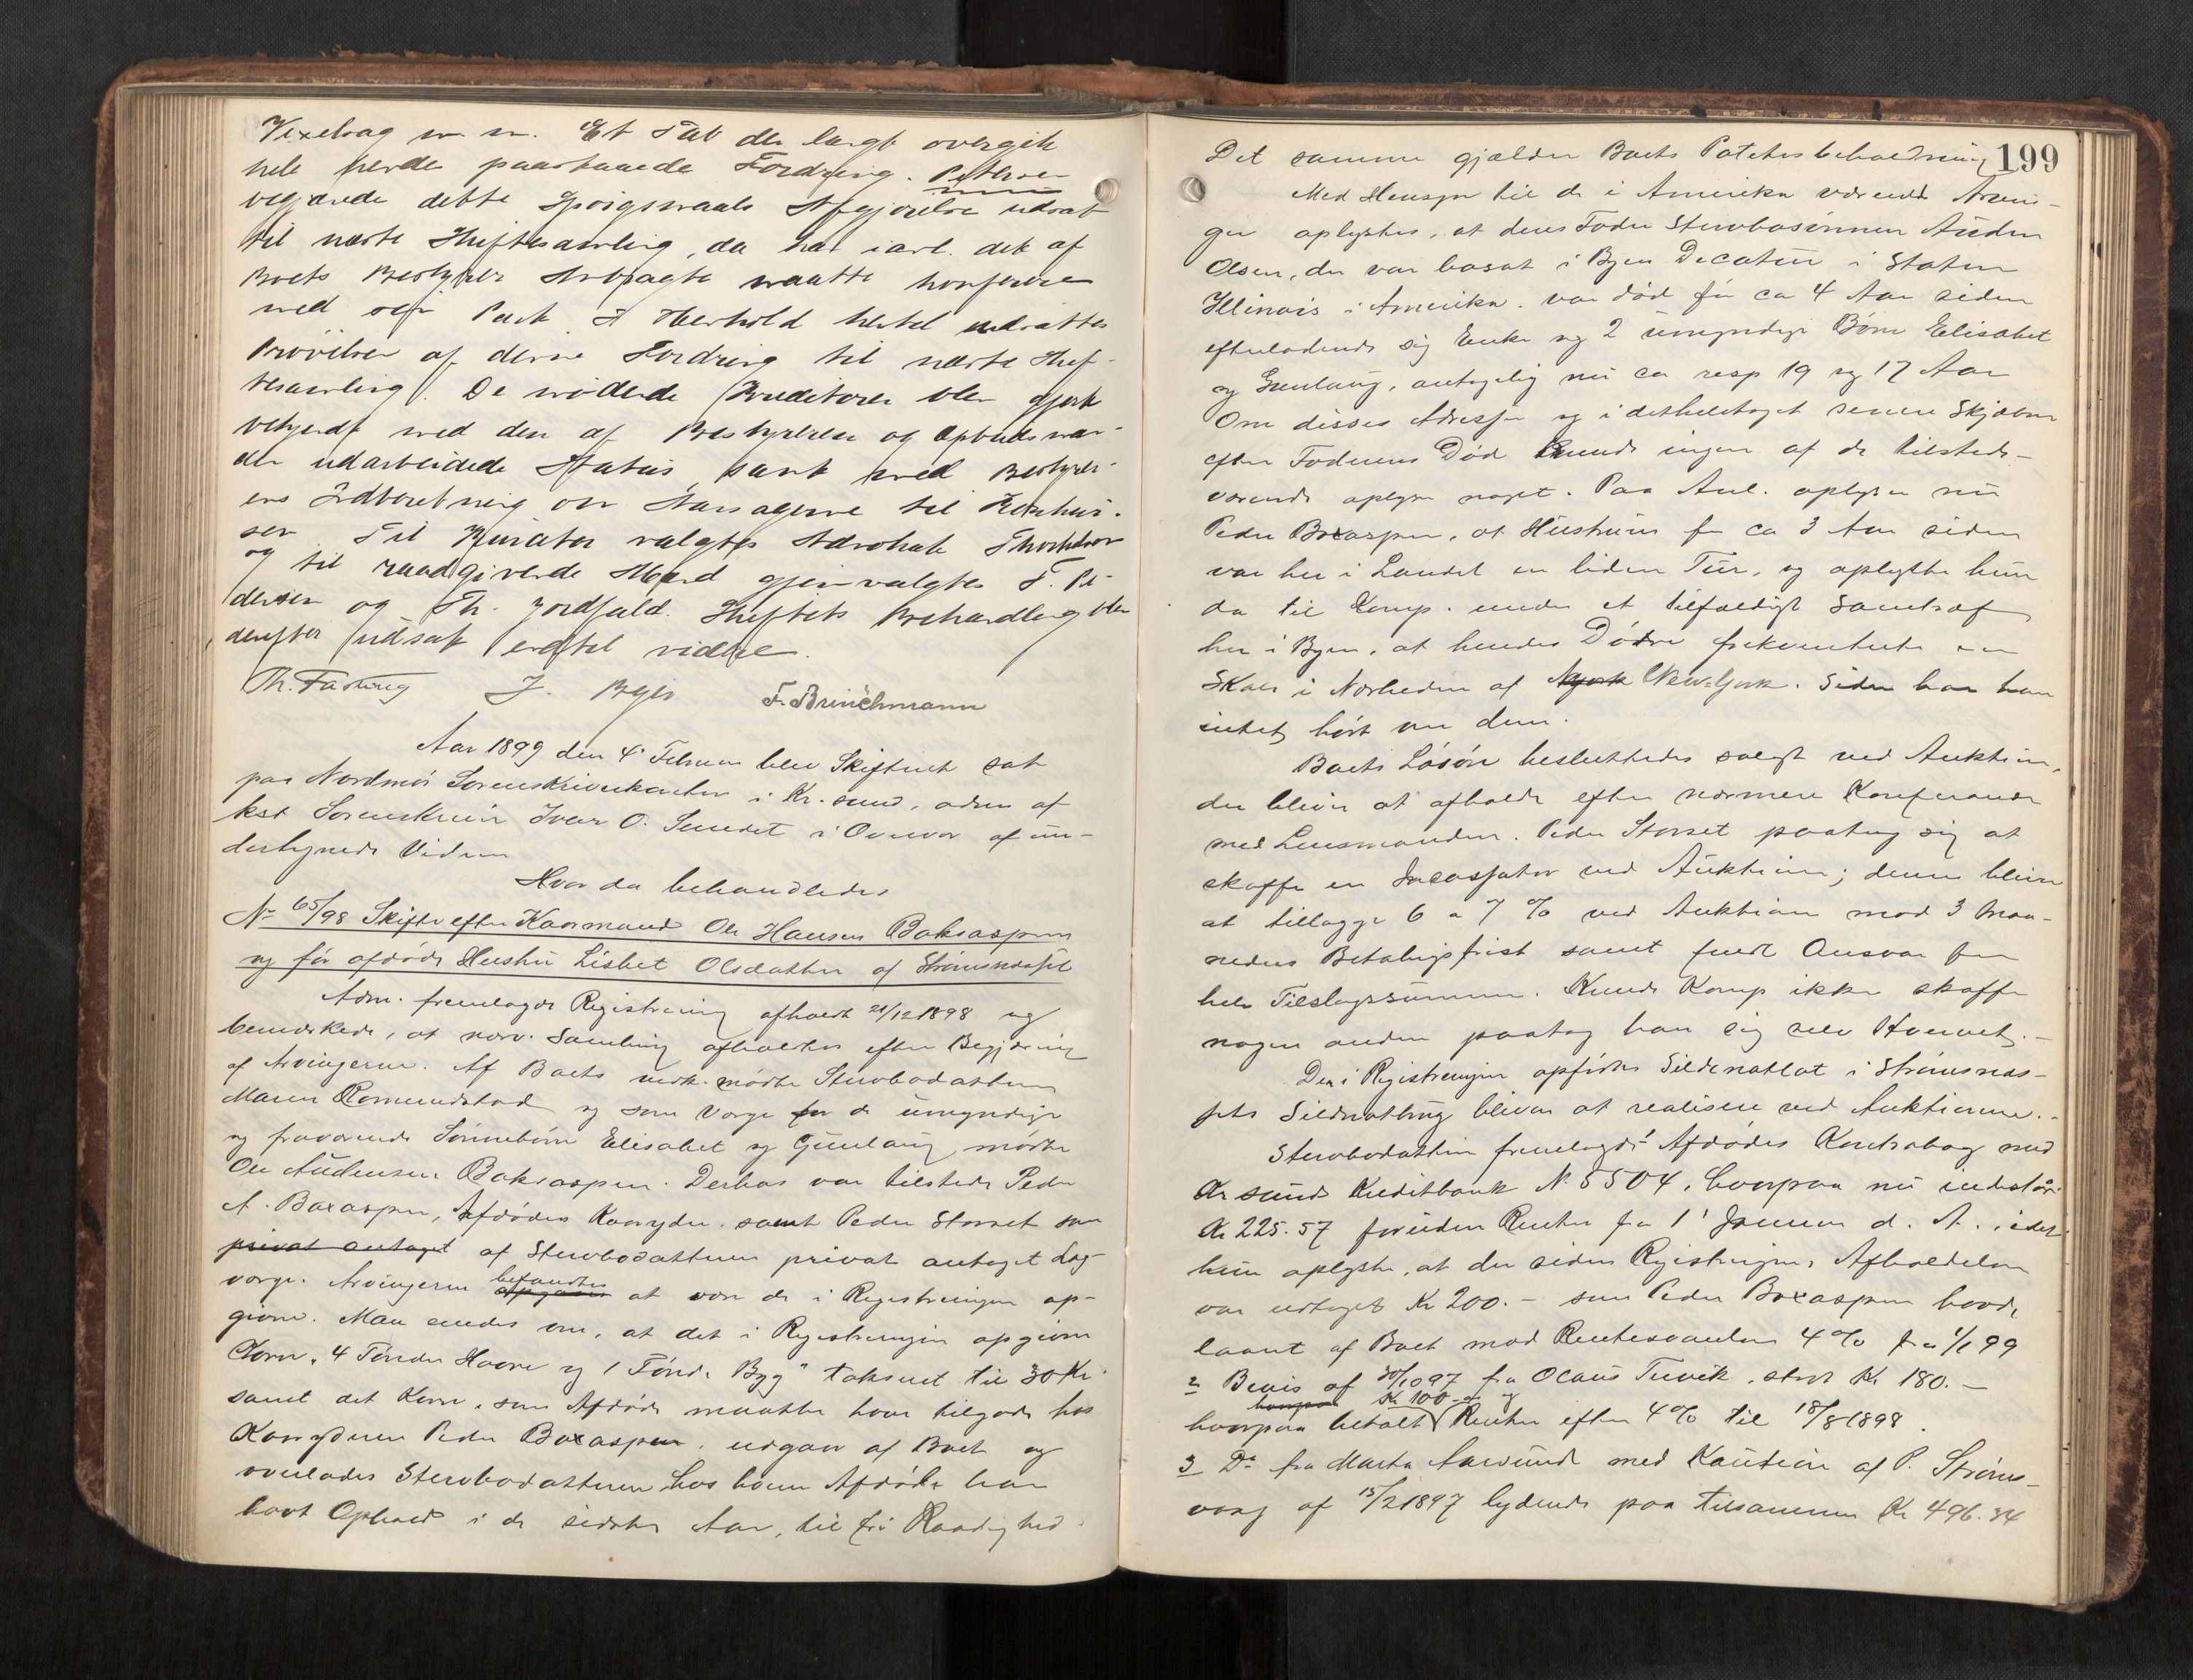 Vexelsag m. m. Et Tab der langt overgik
hele hende paastaaede Fordring. Petersen
begjærede dette Spørgsmaals Afgjørelse udsat
til næste Skiftesamling, da han iarl. det af
Boets Bestyrer Anbragte maatte konferere
med sin Part. I Henhold hertil udsattes
Prøvelsen af denne Fordring til næste Skif-
tesamling. De mødende Kreditorer blev gjort
bekjendt med den af Bestyreren og Opbudsmæn-
der udarbeidede Status, samt med Bestyrer-
ens Indberetning om Aarsagerne til Konkur-
sen. Til Kurator valgtes Advokat Thorkelson
og til raadgivende Mænd gjenvalgtes F. Pe-
dersen og Th. Jordfald. Skiftets Behandling blev
derefter udsat indtil videre.
Th. Fasting J. Bye F. Brinchmann
Aar 1899 den 4' Februar blev Skifteret sat
paa Nordmør Sorenskriverkontor i Kr.sund, adm. af
kst Sorenskriver Iver O. Smedet i Overvær af un-
dertegnede Vidner
Hvor da behandledes
No 65/98 Skifte efter Kaarmand Ole Hansen Bakaspen
og før afdøde Hustru Lisbet Olsdatter af Strømsnæsset
Adm. fremlagde Registrering afholdt 21/12 1898 og
bemærkede, at nærv. Samling afholdtes efter Begjæring
af Arvingerne. Af Boets vedk. mødte Stervbodatteren
Maren Romundstad og som Værge for de umyndige
og fraværende Sønnebørn Elisabet og Gunlaug mødte
Ole Audensen Bakaspen. Derhos var tilstede Peder
A. Boxaspen, Afdødes Kaaryder, samt Peder Storset som
privat antaget af Stervbodatteren privat antaget Lag-
værge. Arvingerne befandtes opgaves at være de i Registreringen op-
givne. Man enedes om, at det i Registreringen opgivne
Korn, "4 Tønder Havre og 1 Tønde Byg" takseret til 30 Kr.
samt det Korn, som Afdøde maatte have tilgode hos
Kaaryderen Peder Boxaspen, udgaar af Boet og
overlades Stervbodatteren, hos hvem Afdøde har
havt Ophold i de sidste Aar, til fri Raadighed.
199
Det samme gjælder Boets Potetesbeholdning
Med Hensyn til de i Amerika værende Arvin-
ger oplystes, at deres Fader Stervbosønnen Auden
Olsen, der var bosat i Byen Decatur i Staten
Illinois i Amerika, var død for ca 4 Aar siden
efterladende sig Enke og 2 umyndige Børn Elisabet
og Gunlaug, antagelig nu ca resp 19 og 17 Aar
Om disses Adresse og i detheletaget senere Skjæbne
efter Faderens Død kunde ingen af de tilstede-
værende oplyse noget. Paa Anl. oplyser nu
Peder Boxaspen, at Hustruen for ca 3 Aar siden
var her i Landet en liden Tur, og oplyste hun
da til Komp. under et tilfældigt Samtraf
her i Byen, at hendes Døtre frekventerte en
Skole i Nærheden af Nyork New-York. Siden har han
intet hørt om dem.
Boets Løsøre besluttedes solgt ved Auktion,
der bliver at afholde efter nærmere Konferance
med Lensmanden. Peder Storset paatog sig at
skaffe en Incassator ved Auktionen; denne bliver
at tillægge 6 a 7 % ved Auktion mod 3 Maa-
neders Betalingsfrist samt fuldt Ansvar for
hele Tilslagssummen. Kunde Komp ikke skaffe
nogen anden paatog han sig selv Hvervet.-
Den i Registreringen opførte Sildenotlot i Strømsnæs-
sets Sildnotbrug bliver at realisere ved Auktionen.-
Stervbodatteren fremlagde 1 Afdødes Kontrabog med
Kr sunds Kreditbank No 5504, hvorpaa nu indestår
Kr 225.57 foruden Renter fra 1' Januar d. A., idet
hun oplyste, at der siden Registreringens Afholdelse
var udtaget Kr 200.- som Peder Boxaspen havde
laant af Boet mod Rentesvarelse 4% fra 1/1 99
2 Bevis af 30/10 97 fra Olaus Tuvik, stort Kr 180.-
hvorpaa Kr 100 - og
hvorpaa betalt Renter efter 4% til 18/8 1898.
3 Do fra Marta Aarsund med Kaution af P. Strøms-
vaag af 15/2 1897 lydende paa tilsammen Kr 496.34